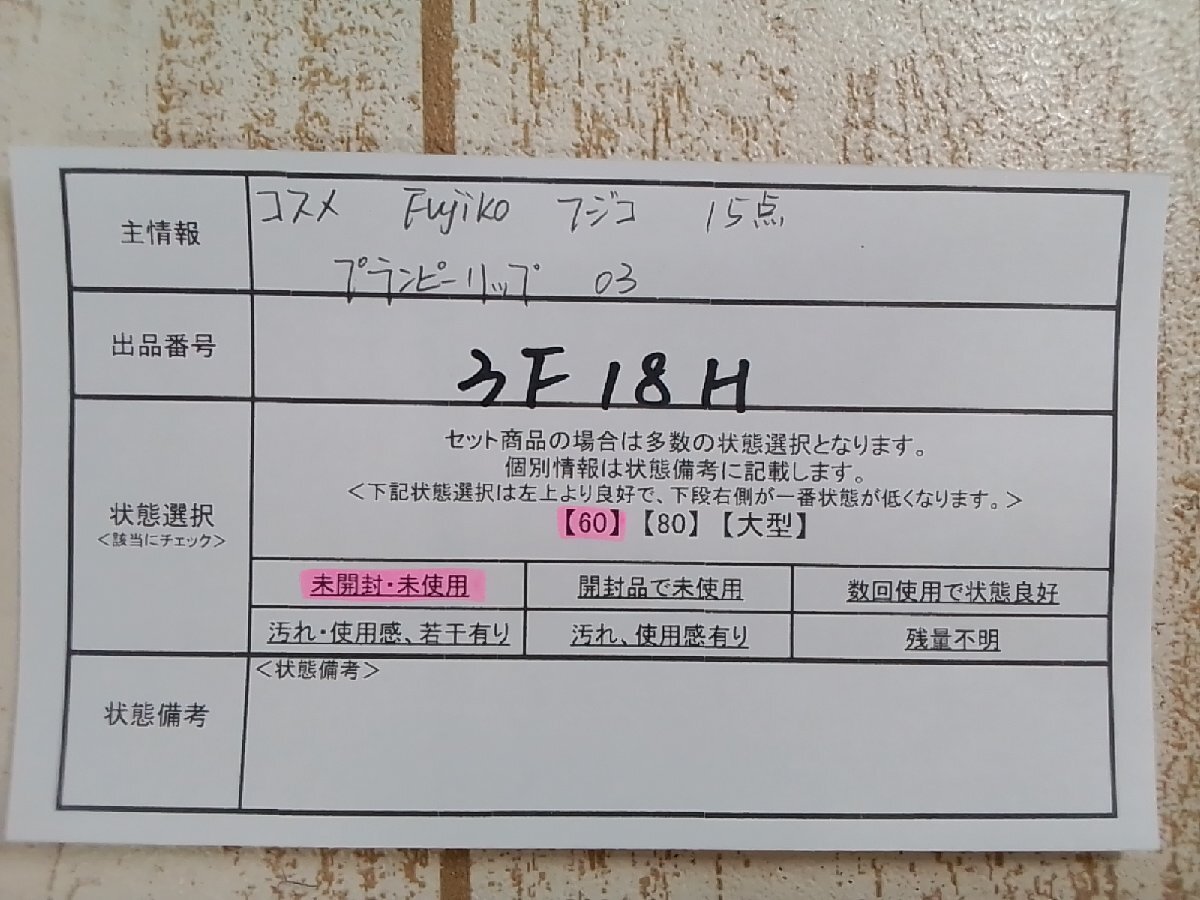 主情報
コスメ Fujiko フジコ 15点
プランピーリップ 03
出品番号
3F18H
状態選択
＜該当にチェック＞
セット商品の場合は多数の状態選択となります。
個別情報は状態備考に記載します。
＜下記状態選択は左上より良好で、下段右側が一番状態が低くなります。＞
【60】【80】【大型】
未開封・未使用 開封品で未使用 数回使用で状態良好
汚れ・使用感、若干有り 汚れ、使用感有り 残量不明
状態備考
＜状態備考＞